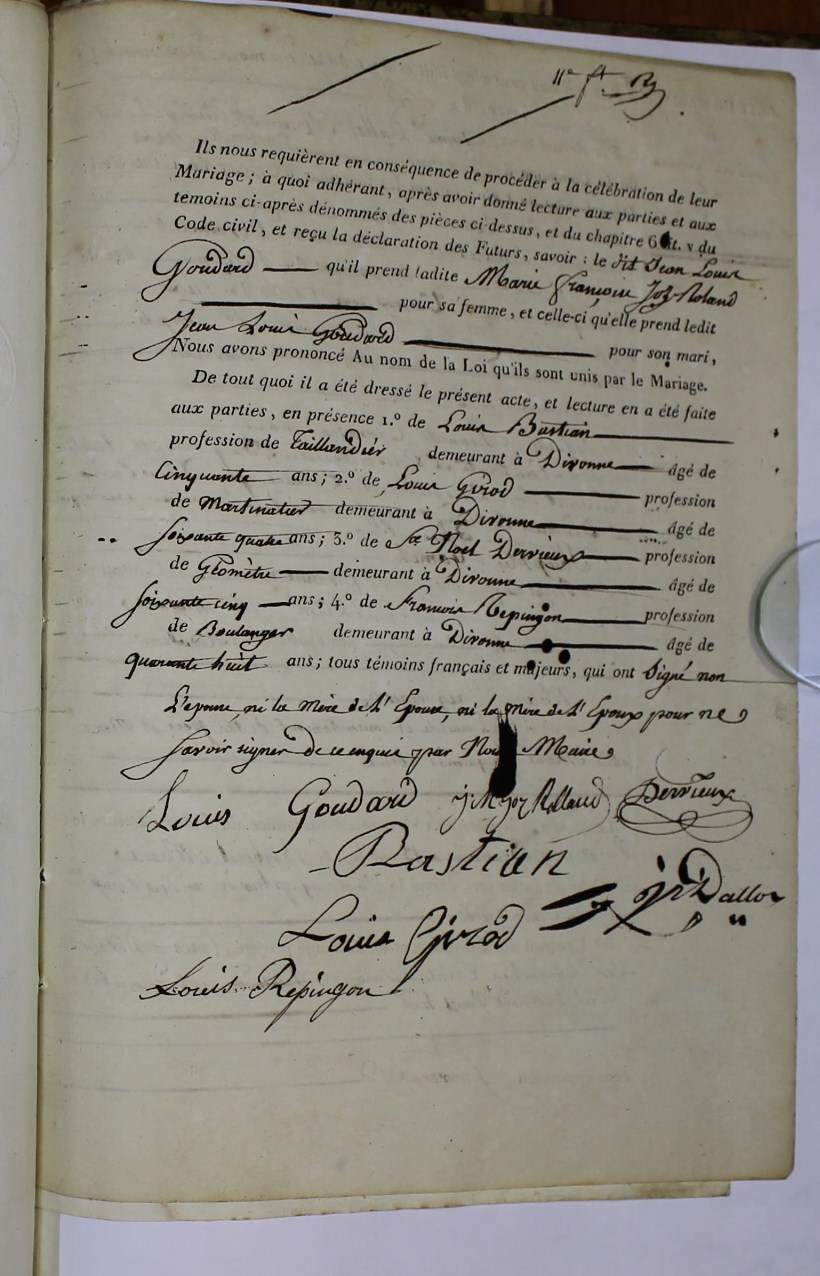 Ils nous requièrent en conséquence de procéder à la célébration de leur
Mariage ; à quoi adhérant, après avoir donné lecture aux parties et aux
temoins ci-après dénommés des pièces ci-dessus, et du chapitre 6 tit. v du
Code civil, et reçu la déclaration des Futurs, savoir : le dit Jean Louis
Goudard — qu'il prend ladite Marie françoise Joz-Roland
pour sa femme, et celle-ci qu'elle prend ledit
Jean Louis Goudard — pour son mari,
Nous avons prononcé Au nom de la Loi qu'ils sont unis par le Mariage.
De tout quoi il a été dressé le présent acte, et lecture en a été faite
aux parties, en présence 1.º de Louis Bastian
profession de Taillandier demeurant à Divonne — âgé de
Cinquante ans ; 2.º de Louis Girod — profession
de Martinatier demeurant à Divonne — âgé de
soixante quatre ans ; 3.º de Noel Derrieux — profession
de Géomètre — demeurant à Divonne — âgé de
soixante cinq — ans ; 4.º de francois Repingon — profession
de Boulanger demeurant à Divonne — âgé de
quarante huit ans ; tous témoins français et majeurs, qui ont signé non
L'epouse, ni la Mère de l'Epouse, ni la Mère de l'Epoux pour ne
savoir signer de ce enquis par Nous Maire
Louis Goudard Joz Rolland Derrieux
Bastian
Dallor
Louis Girod
Louis Repingon